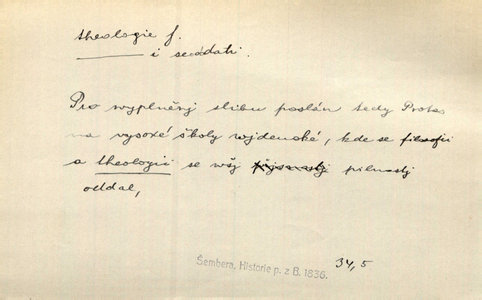 theologie f.
i
Pro wyplněnj slibu poslán tedy Protas
na vysoké školy wjdenské, kde se filosofii
a theologii se wšj pilnostj
oddal,
Šembera, Historie p. z B. 1836. 34,5